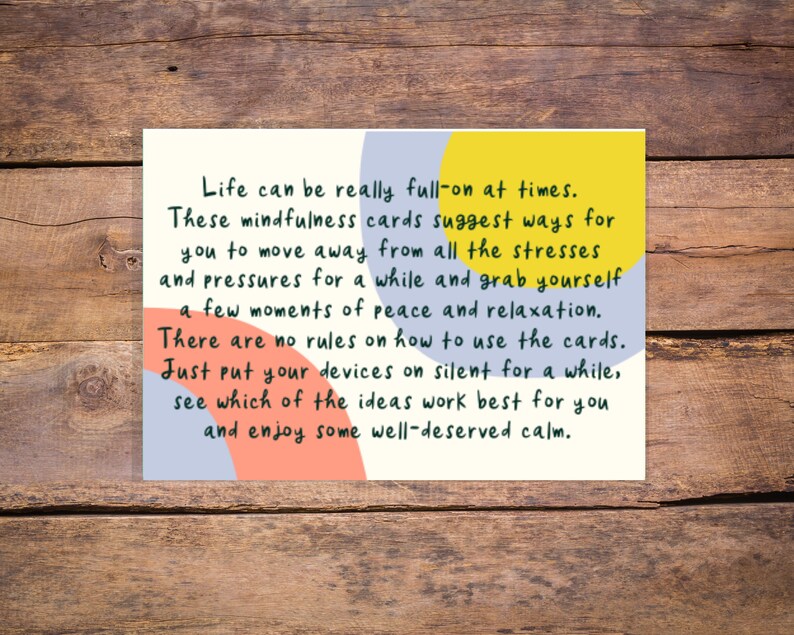 Life can be really full-on at times.
These mindfulness cards suggest ways for
you to move away from all the stresses
and pressures for a while and grab yourself
a few moments of peace and relaxation.
There are no rules on how to use the cards.
Just put your devices on silent for a while,
see which of the ideas work best for you
and enjoy some well-deserved calm.